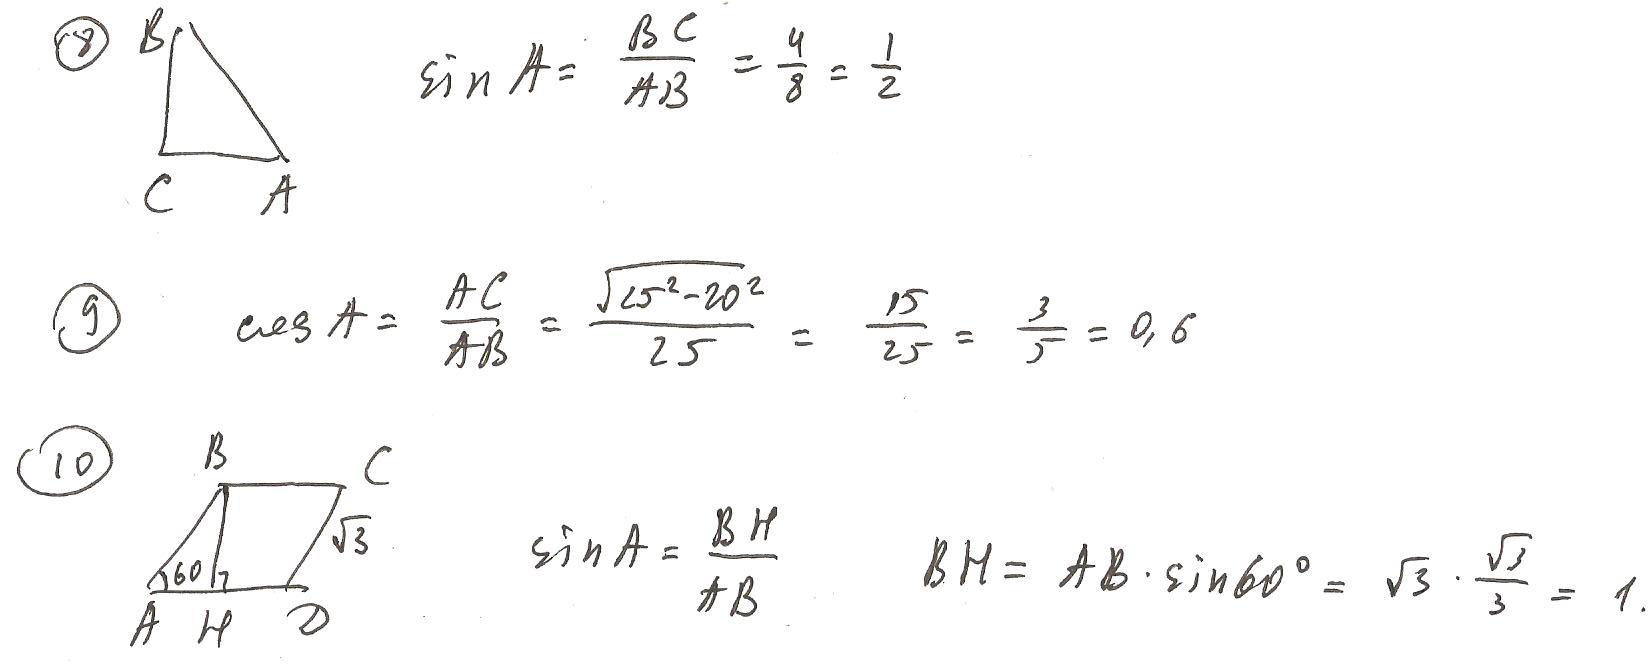 8 B sin A = BC/AB = 4/8 = 1/2
C A
9 cos A = AC/AB = √(25²-20²)/25 = 15/25 = 3/5 = 0,6
10 B C
√3
60
sin A = BH/AB BH = AB · sin 60° = √3 · √3/3 = 1.
A H D